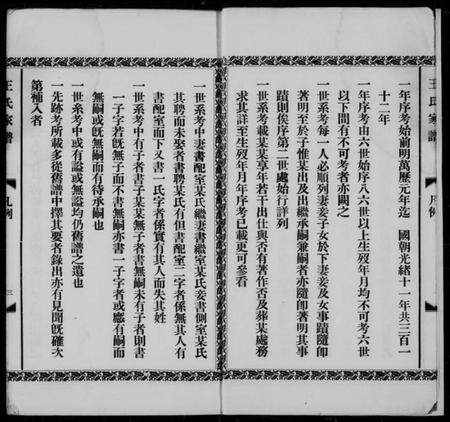 王氏家譜
凡例
一年序考始前明萬歷元年迄 國朝光緒十一年共三百一
十二年
一年序考由六世始序八六世以上生歿年月均不可考六世
以下間有不可考者亦闕之
一世系考每一人必順列妻妾子女於下妻妾及女事蹟隨卽
著明至於子惟某出及出繼承嗣兼嗣者亦隨卽著明其事
蹟則俟序第二世處始行詳列
一世系考載某某享年若干出仕與否有著作否及葬某處務
求其詳至生歿年月年序考已載更可參看
一世系考中妻書配室某氏繼妻書繼室某氏妾書側室某氏
其聘而未娶者書聘某氏有但書配室二字者係無其人有
書配室而下又書一氏字者係實有其人而失其姓
一世系考中有子者書子某某無子者書無嗣未有子者則書
一子字若旣無子而不書無嗣亦書一子字者或應有嗣而
無嗣或旣無嗣而有待承嗣也
一世系考中或有謚或無謚均仍舊譜之遺也
一先跡考所載多從舊譜中擇其要者錄出亦有見聞旣確次
第補入者
王氏家譜
凡例
三